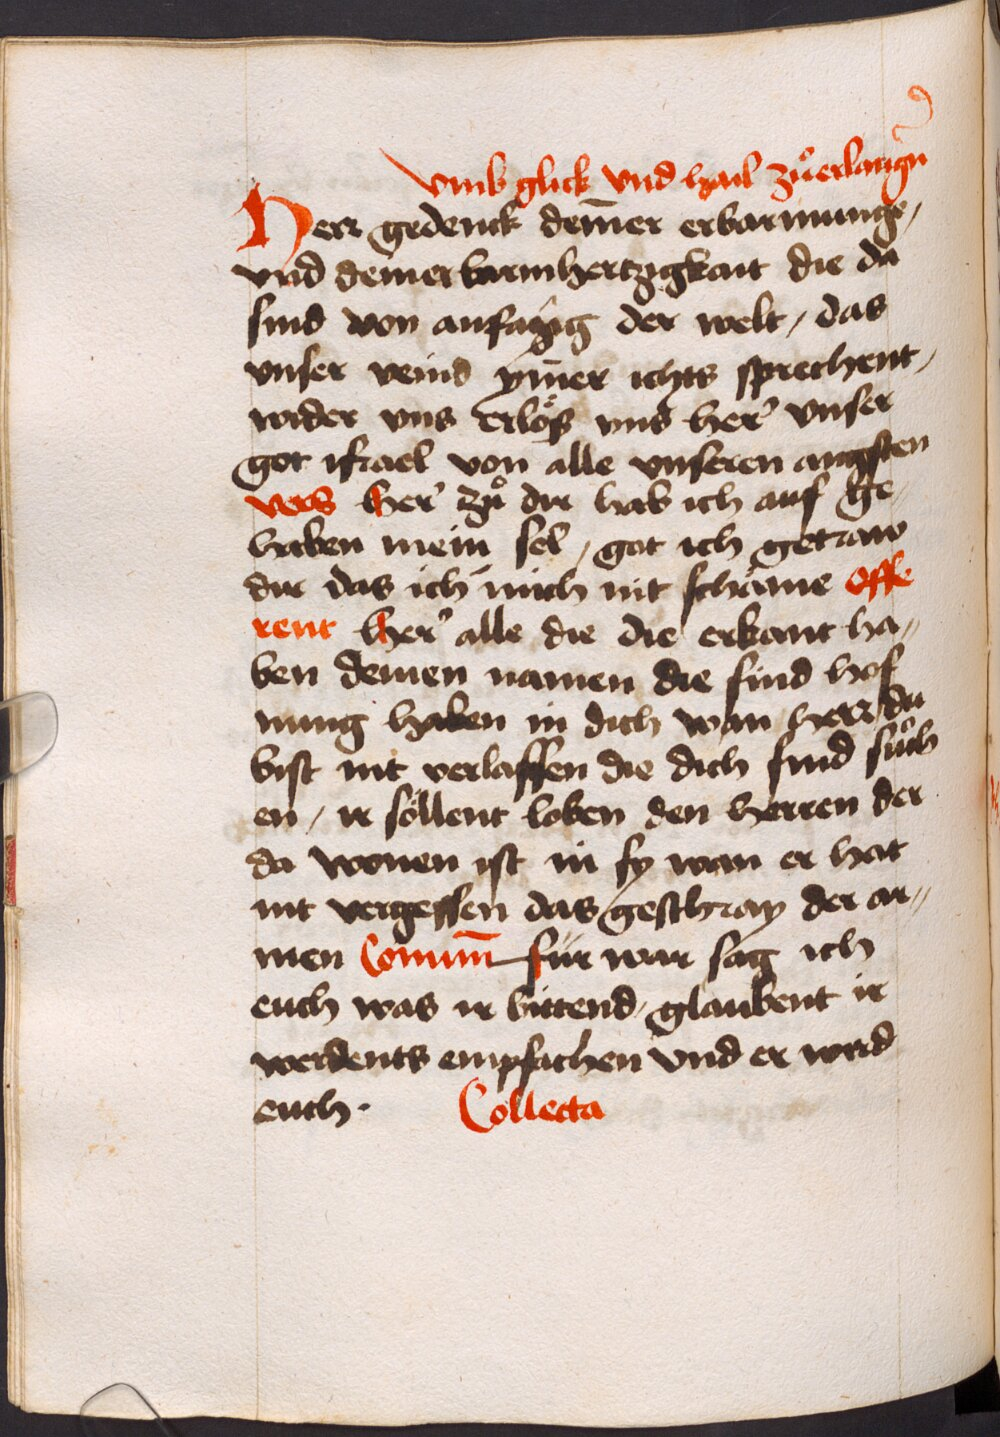 vmb glick vnd hail zuͦerlangn
Herr gedenck dein̄er erbarmunge /
vnd deiner barmhertzigkait die da
sind von anfang der welt / das
vnser veind ym̄er ichts sprechent /
wider vns Erlöß vns her' vnser
got israel von alle vnseren angsten
vers her' zuͦ dir hab ich auf ge
haben mein sel / got ich getraw
dir das ich mich nit schäme Offe
rent her' alle die die erkant ha〃
ben deinen namen die sind hof
nung haben in dich wan herr du
bist nit verlassen die dich sind suͦch
en / ir söllent loben den herren der
da wonen ist in sy wan er hat
nit vergessen das geschray der ar〃
men Comm̄ für war sag ich
euch was ir bittend / glaubent ir
werdents empfachen vnd er wird
euch · Collecta